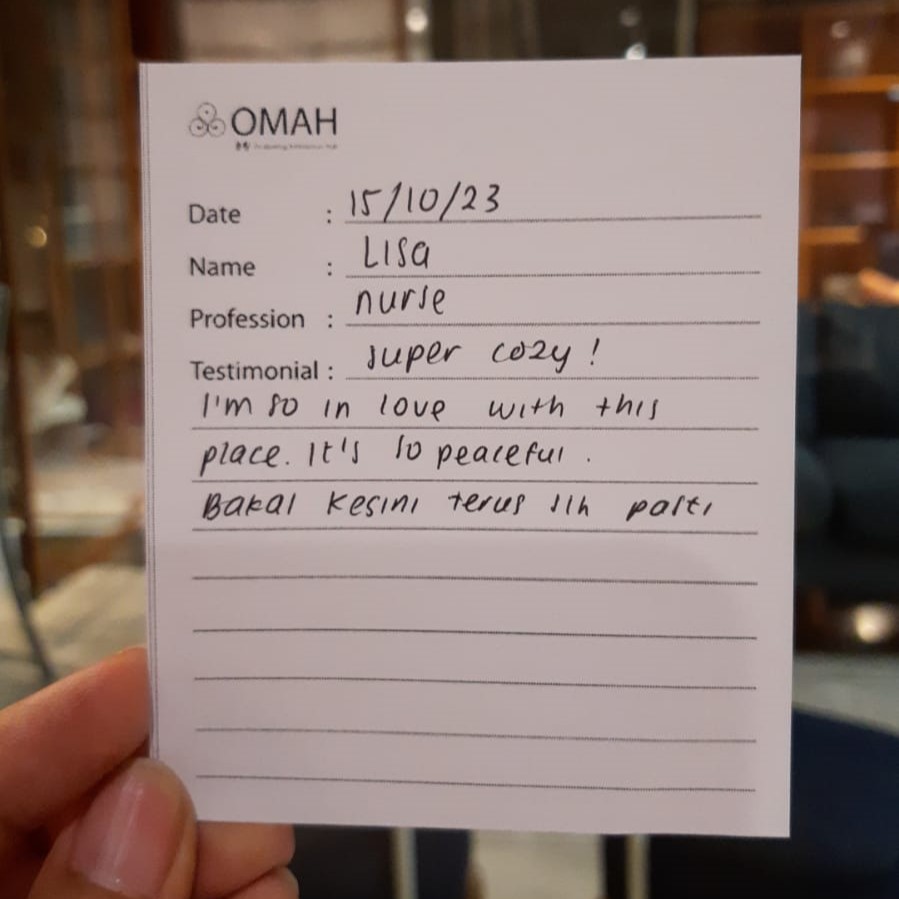 OMAH
Date : 15/10/23
Name : Lisa
Profession : nurse
Testimonial : super cozy!
I'm so in love with this
place. It's so peaceful.
Bakal kesini terus sih pasti